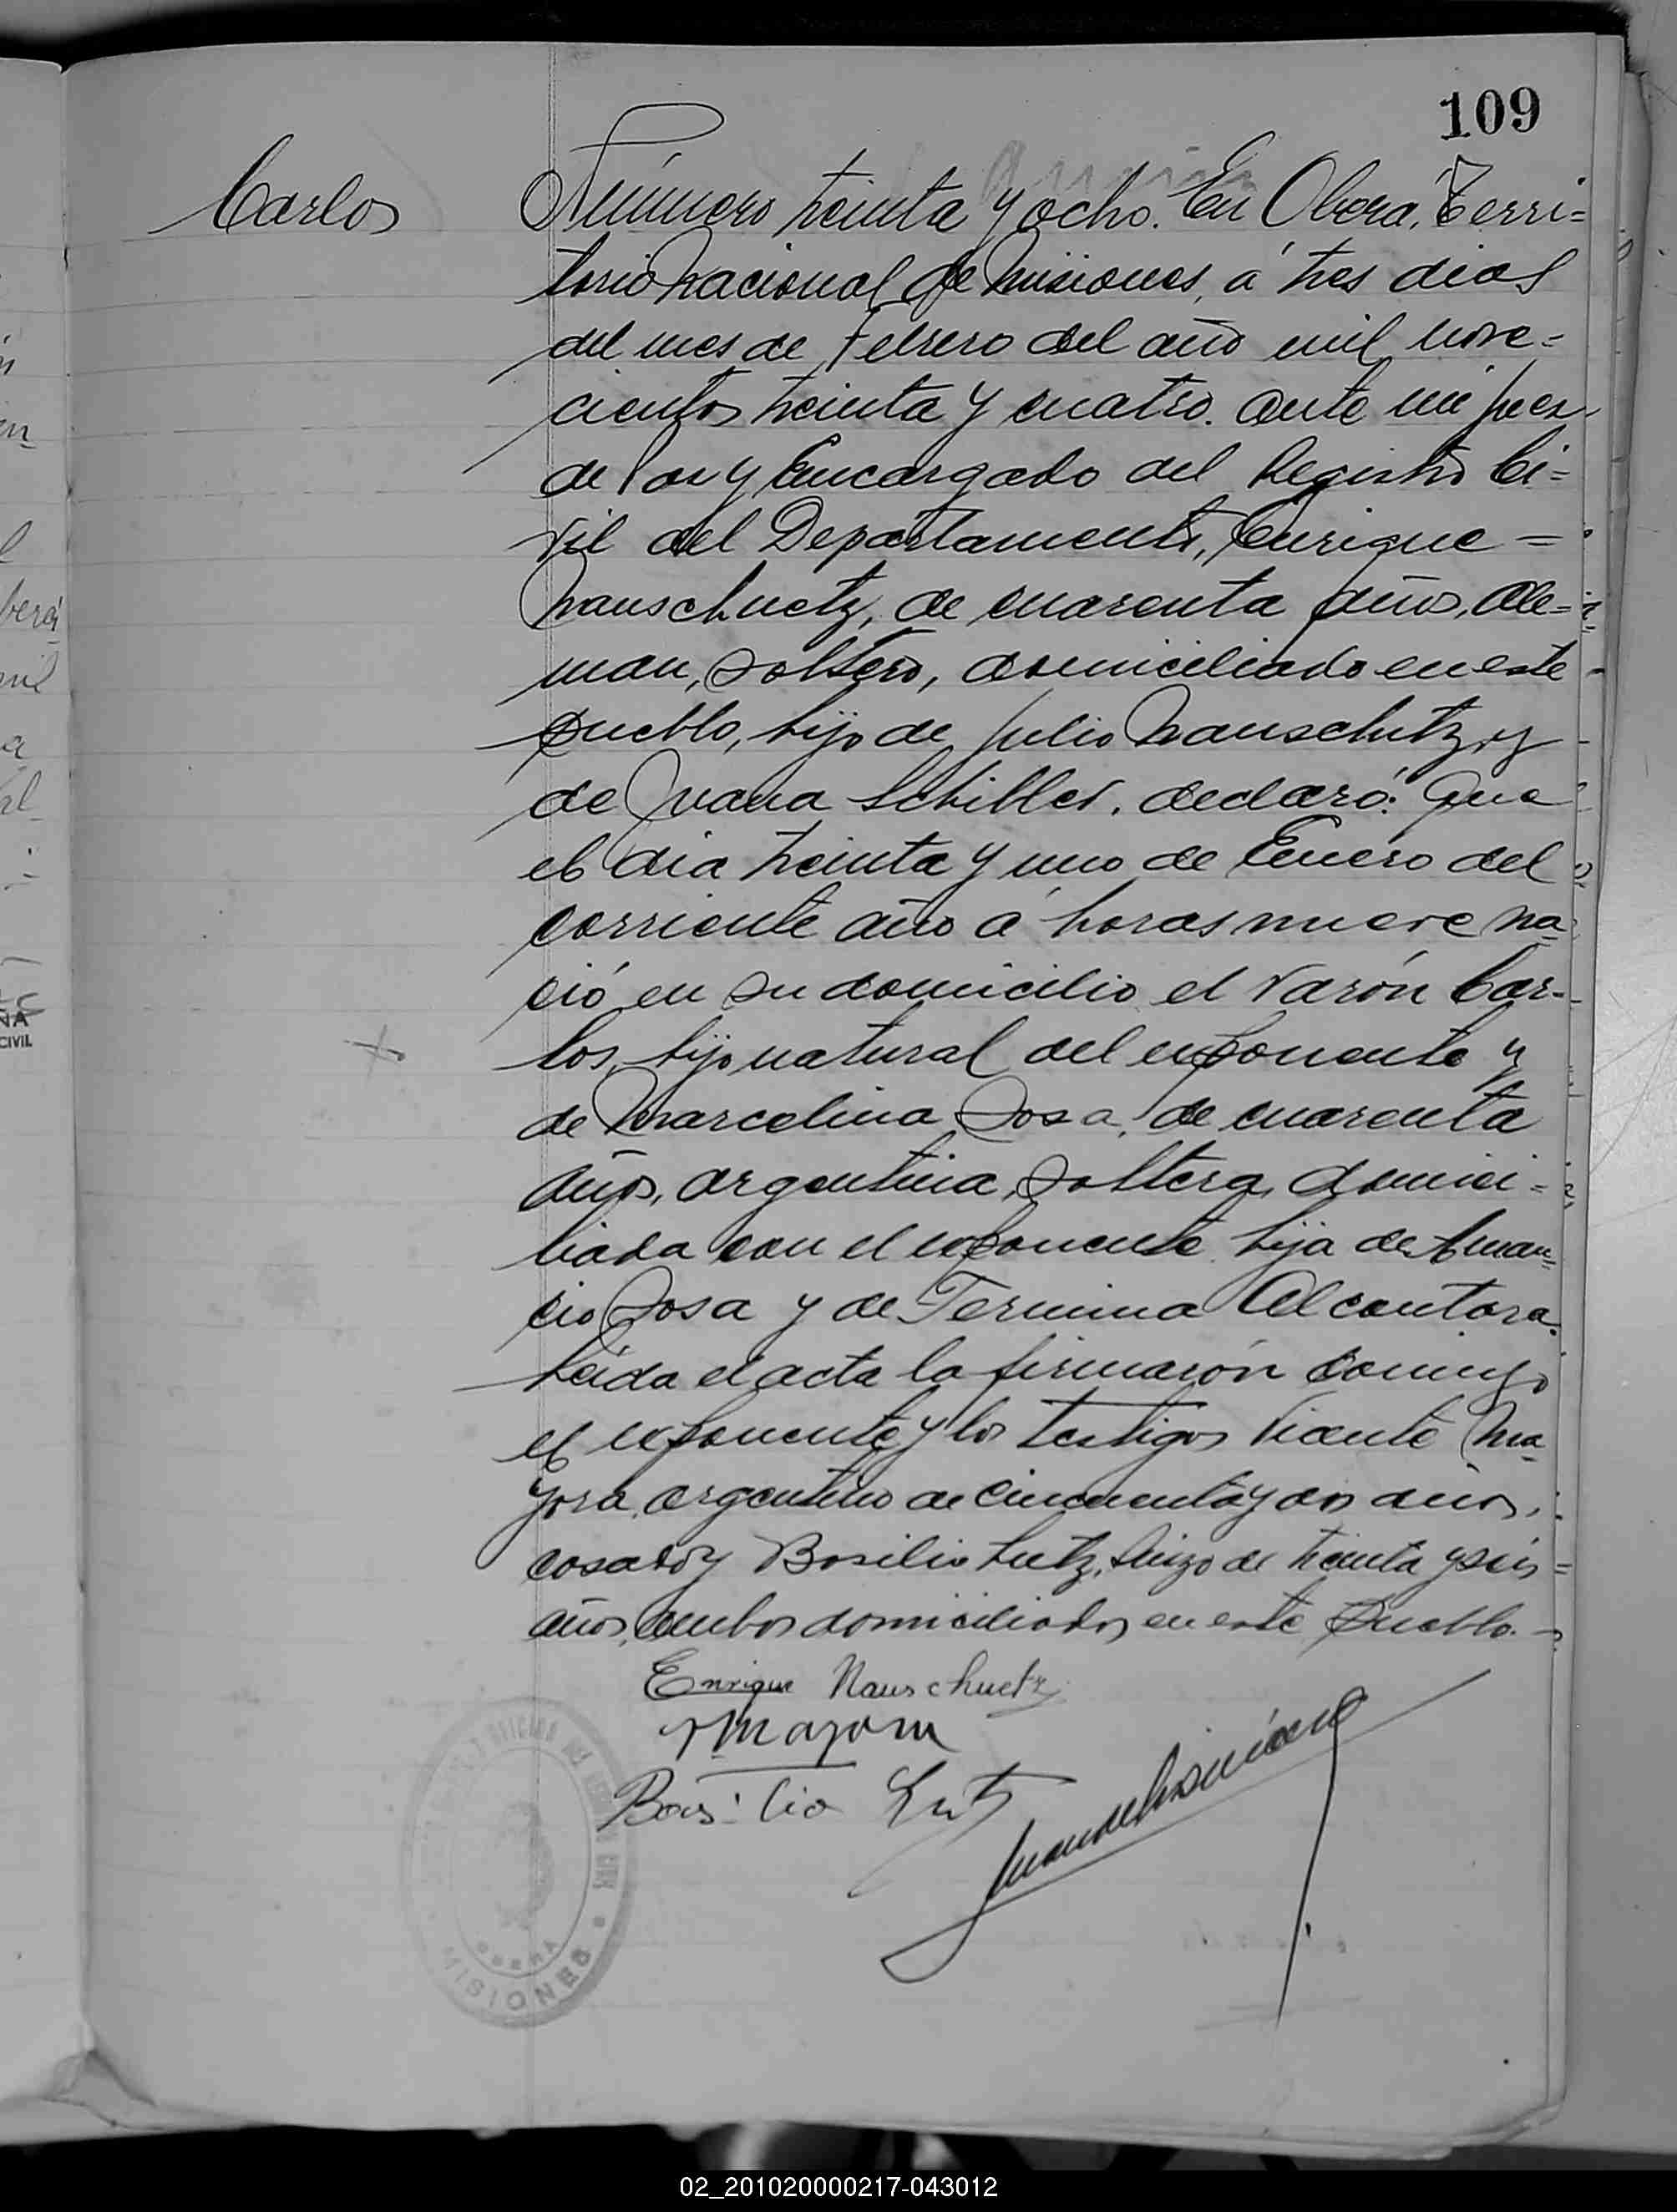 109
Carlos
Número treinta y ocho. En Oberá, Terri=
torio Nacional de Misiones, á tres dias
del mes de Febrero del año mil nove=
cientos treinta y cuatro. ante mi Juez
de Paz y Encargado del Registro Ci=
vil del Departamento, Enrique =
Nauschuetz, de cuarenta años, ale=
man, soltero, domiciliado en este
pueblo, hijo de Julio Nauschutz y
de Juana Schiller, declaró: Que
el dia treinta y uno de Enero del
corriente año á horas nueve na=
ció en su domicilio el varón Car=
los, hijo natural del exponente y
de Marcelina Sosa, de cuarenta
años, argentina, soltera, domici=
liada con el exponente, hija de Aman=
cio Sosa y de Termina Alcantara.
Leida el acta la firmarón conmigo
el exponente y los testigos Vicente Ma=
yora, argentino de cincuenta y dos años,
casado y Basilio Lutz, suizo de treinta y seis
años, ambos domiciliados en este pueblo.
Enrique Nauschuetz
VMayora
Basilio Lutz
OBERA
MISIONES
02_201020000217-043012